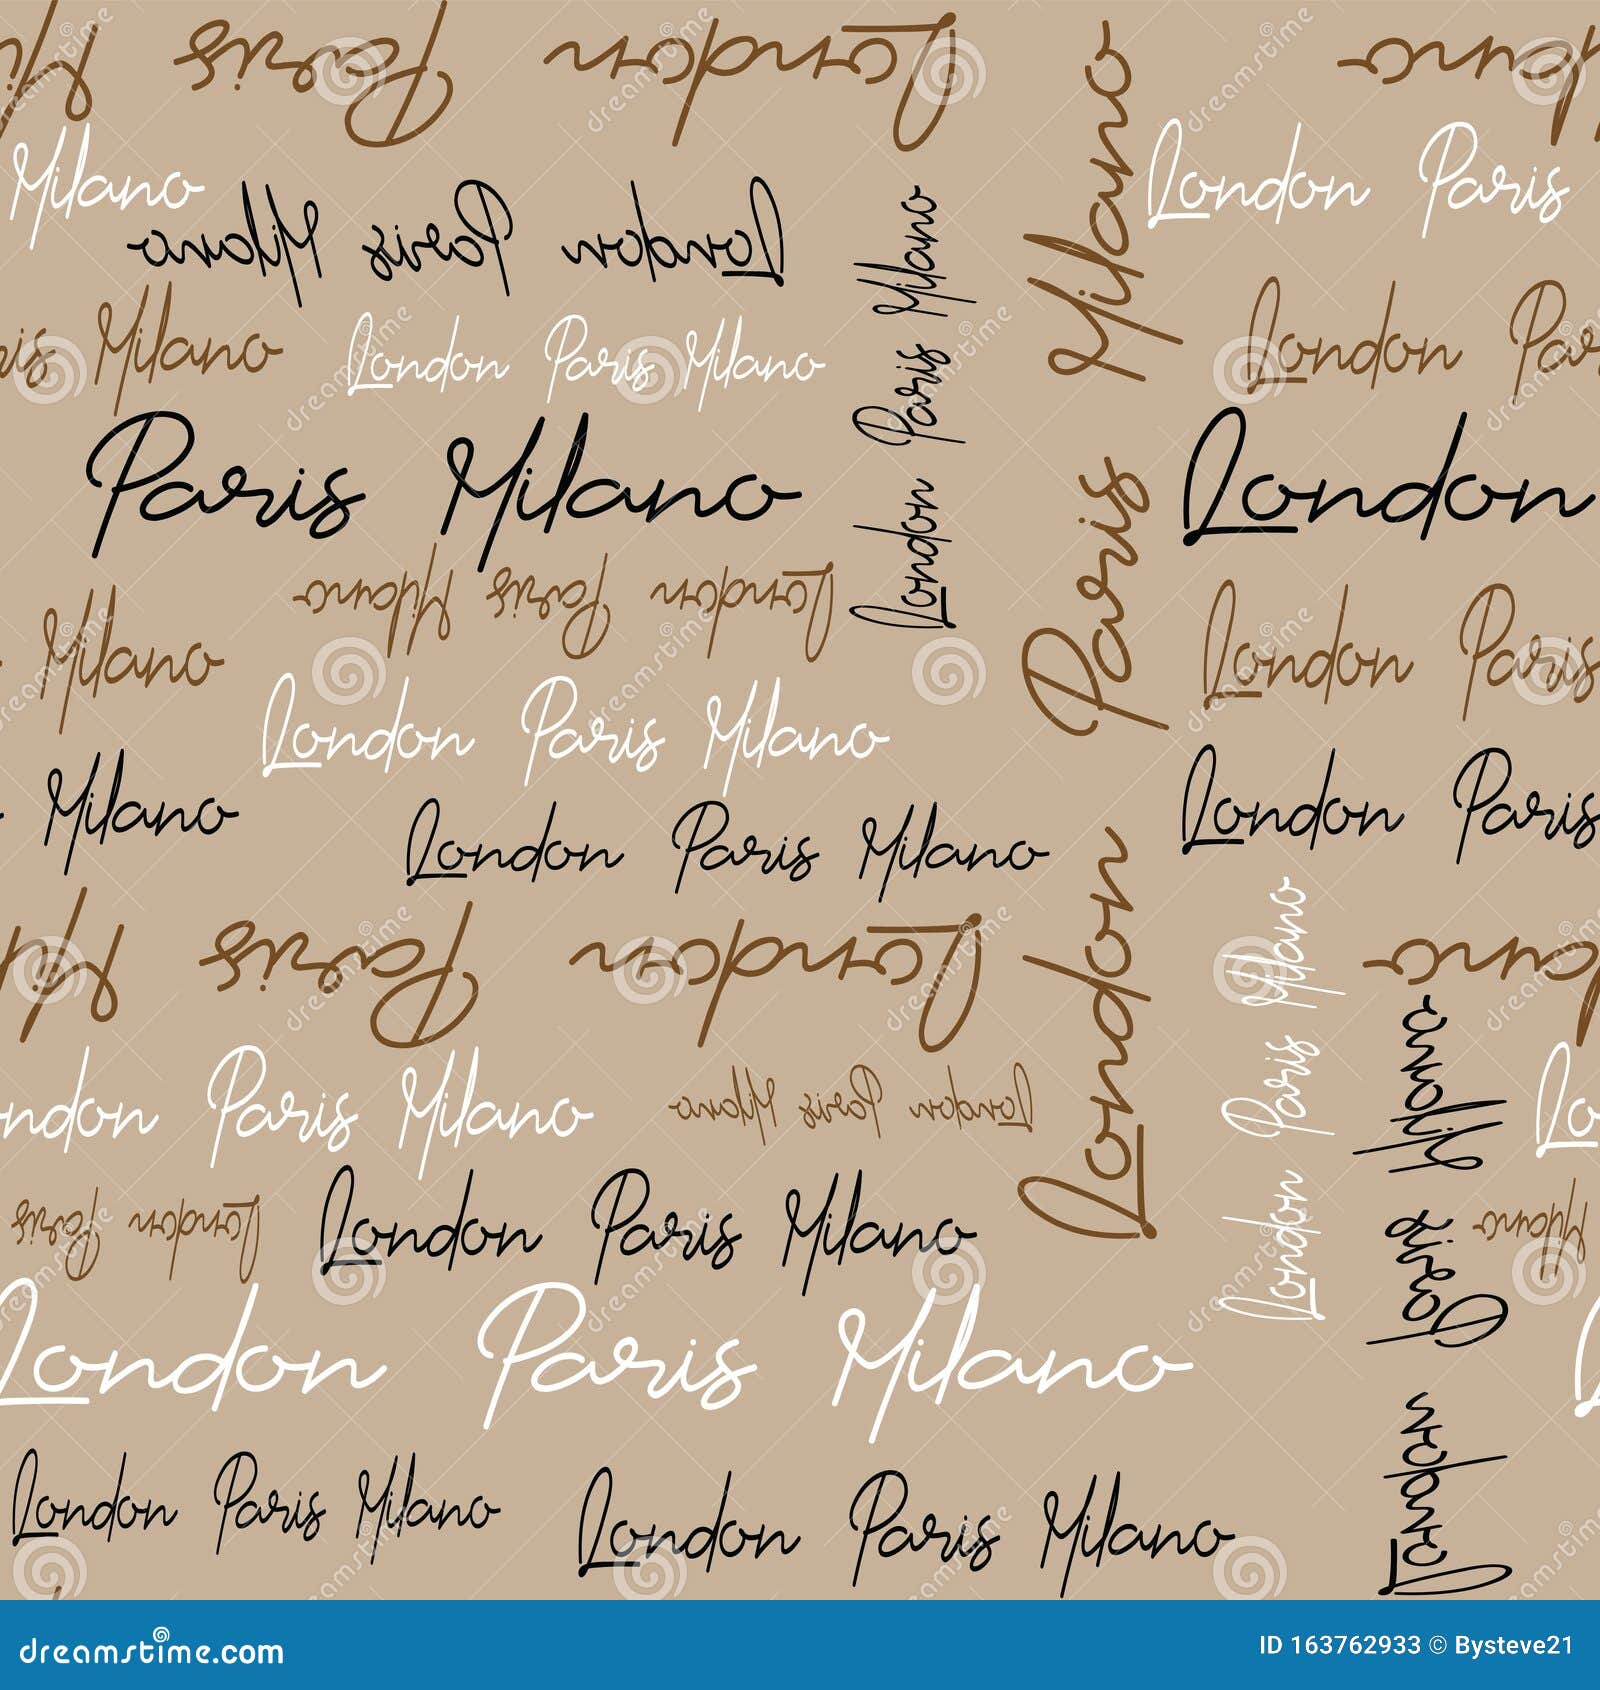 Paris London
Milano
Milano
London Paris
Milano Paris London
London Paris Milano
Milano
London
London Paris Milano
Paris Milano
London
London Paris Milano
Milano Paris London
Milano
London Paris
London Paris Milano
Milano
London Paris
London Paris Milano
Paris London
London Paris Milano
Paris Milano
Milano Paris London
London Paris Milano
Paris London
London Paris Milano
Milano
London Paris Milano
London Paris Milano
London Paris Milano
London Paris Milano
dreamstime.com
ID 163762933 © Bysteve21